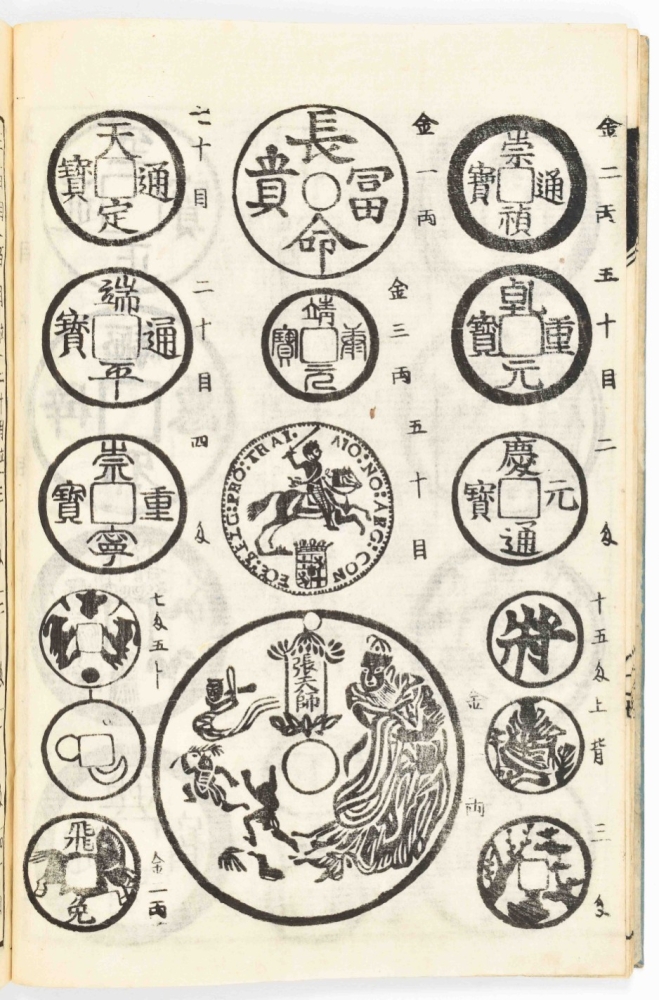 崇禎通寶
金二両
乾元重寶
五十目
慶元通寶
二匁
十五匁上
背
三匁
長命冨貴
金一両
靖康元寶
金三両
MO:NO:ARG:CON FOE:BELG:PRO:TRAI.
五十目
張天師
金
両
天定通寶
二十目
端平通寶
二十目
崇寧重寶
四匁
七匁五
飛兔
金一両